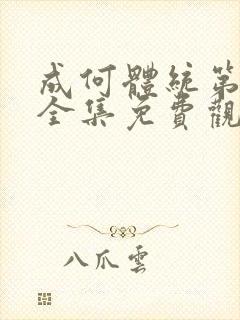 成何體統第
全集免費觀
八爪雲